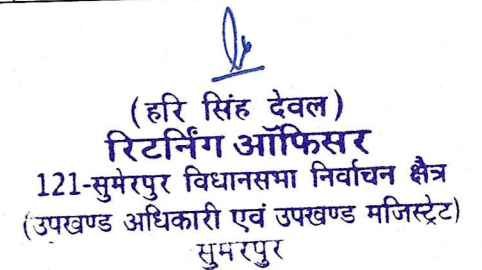 (हरि सिंह देवल)
रिटर्निंग ऑफिसर
121-सुमेरपुर विधानसभा निर्वाचन क्षैत्र
(उपखण्ड अधिकारी एवं उपखण्ड मजिस्ट्रेट)
सुमरपुर